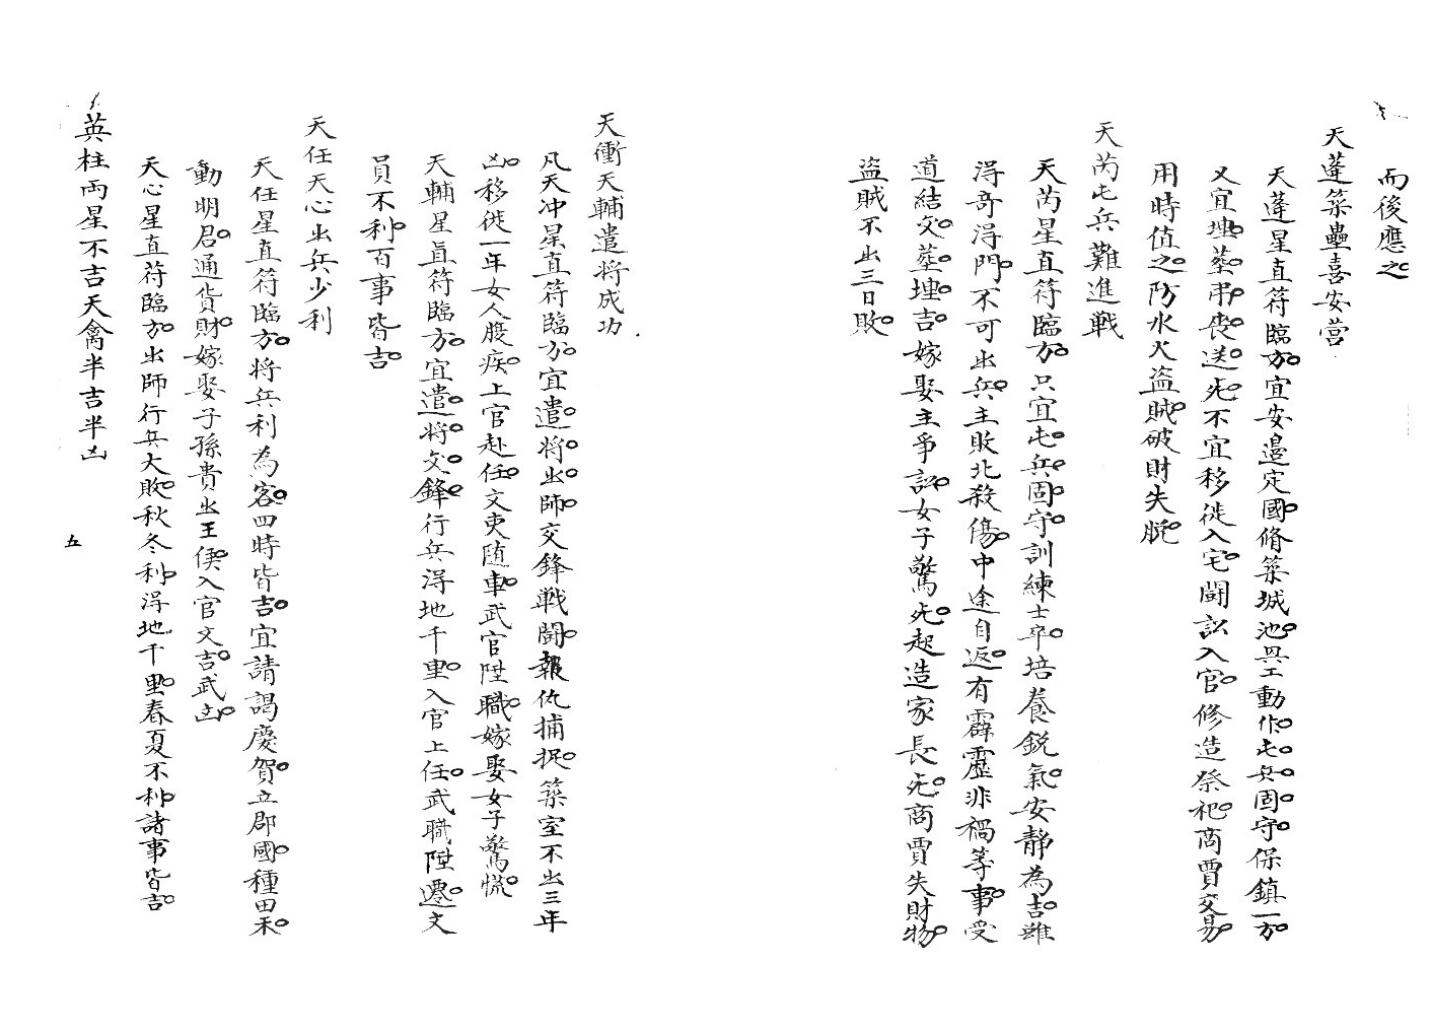 而後應之
天蓬築壘喜安營
天蓬星直符臨方。宜安邊定國。脩築城池。興工動作。屯。兵。固。守。保鎮一方。
又宜埋。葬。弔。喪。送。死。不宜移徙入宅。鬪訟入官。修造祭祀。商賈交易。
用時值之。防水火盜賊。破財失脫。
天芮屯兵難進戰
天芮星直符臨方。只宜屯。兵。固。守。訓練士卒。培養銳氣。安靜為吉。雖
得奇得門。不可出兵。主敗北殺傷。中途自返。有霹靂非禍等事。受
道結交。葬。埋。吉。嫁娶主爭訟。女子驚死。起造家長死。商賈失財物。
盜賊不出三日敗。
天衝天輔遣將成功
凡天冲星直符臨方。宜遣。將。出。師。交鋒戰鬪。報仇捕捉。築室不出三年
凶。移徙一年女人廢疾。上官赴任。文吏随車。武官陞職。嫁娶女子驚慌。
天輔星直符臨方。宜遣。將。交。鋒。行兵得地千里。入官上任。武職陞遷。文
員不利。百事皆吉。
天任天心出兵少利
天任星直符臨方。将兵利為客。四時皆吉。宜請謁慶賀。立郡國。種田禾。
動明君。通貨財。嫁娶子孫貴出王侯。入官文吉。武凶。
天心星直符臨方。出師行兵大敗。秋冬利。得地千里。春夏不利。諸事皆吉。
英柱兩星不吉天禽半吉半凶
五